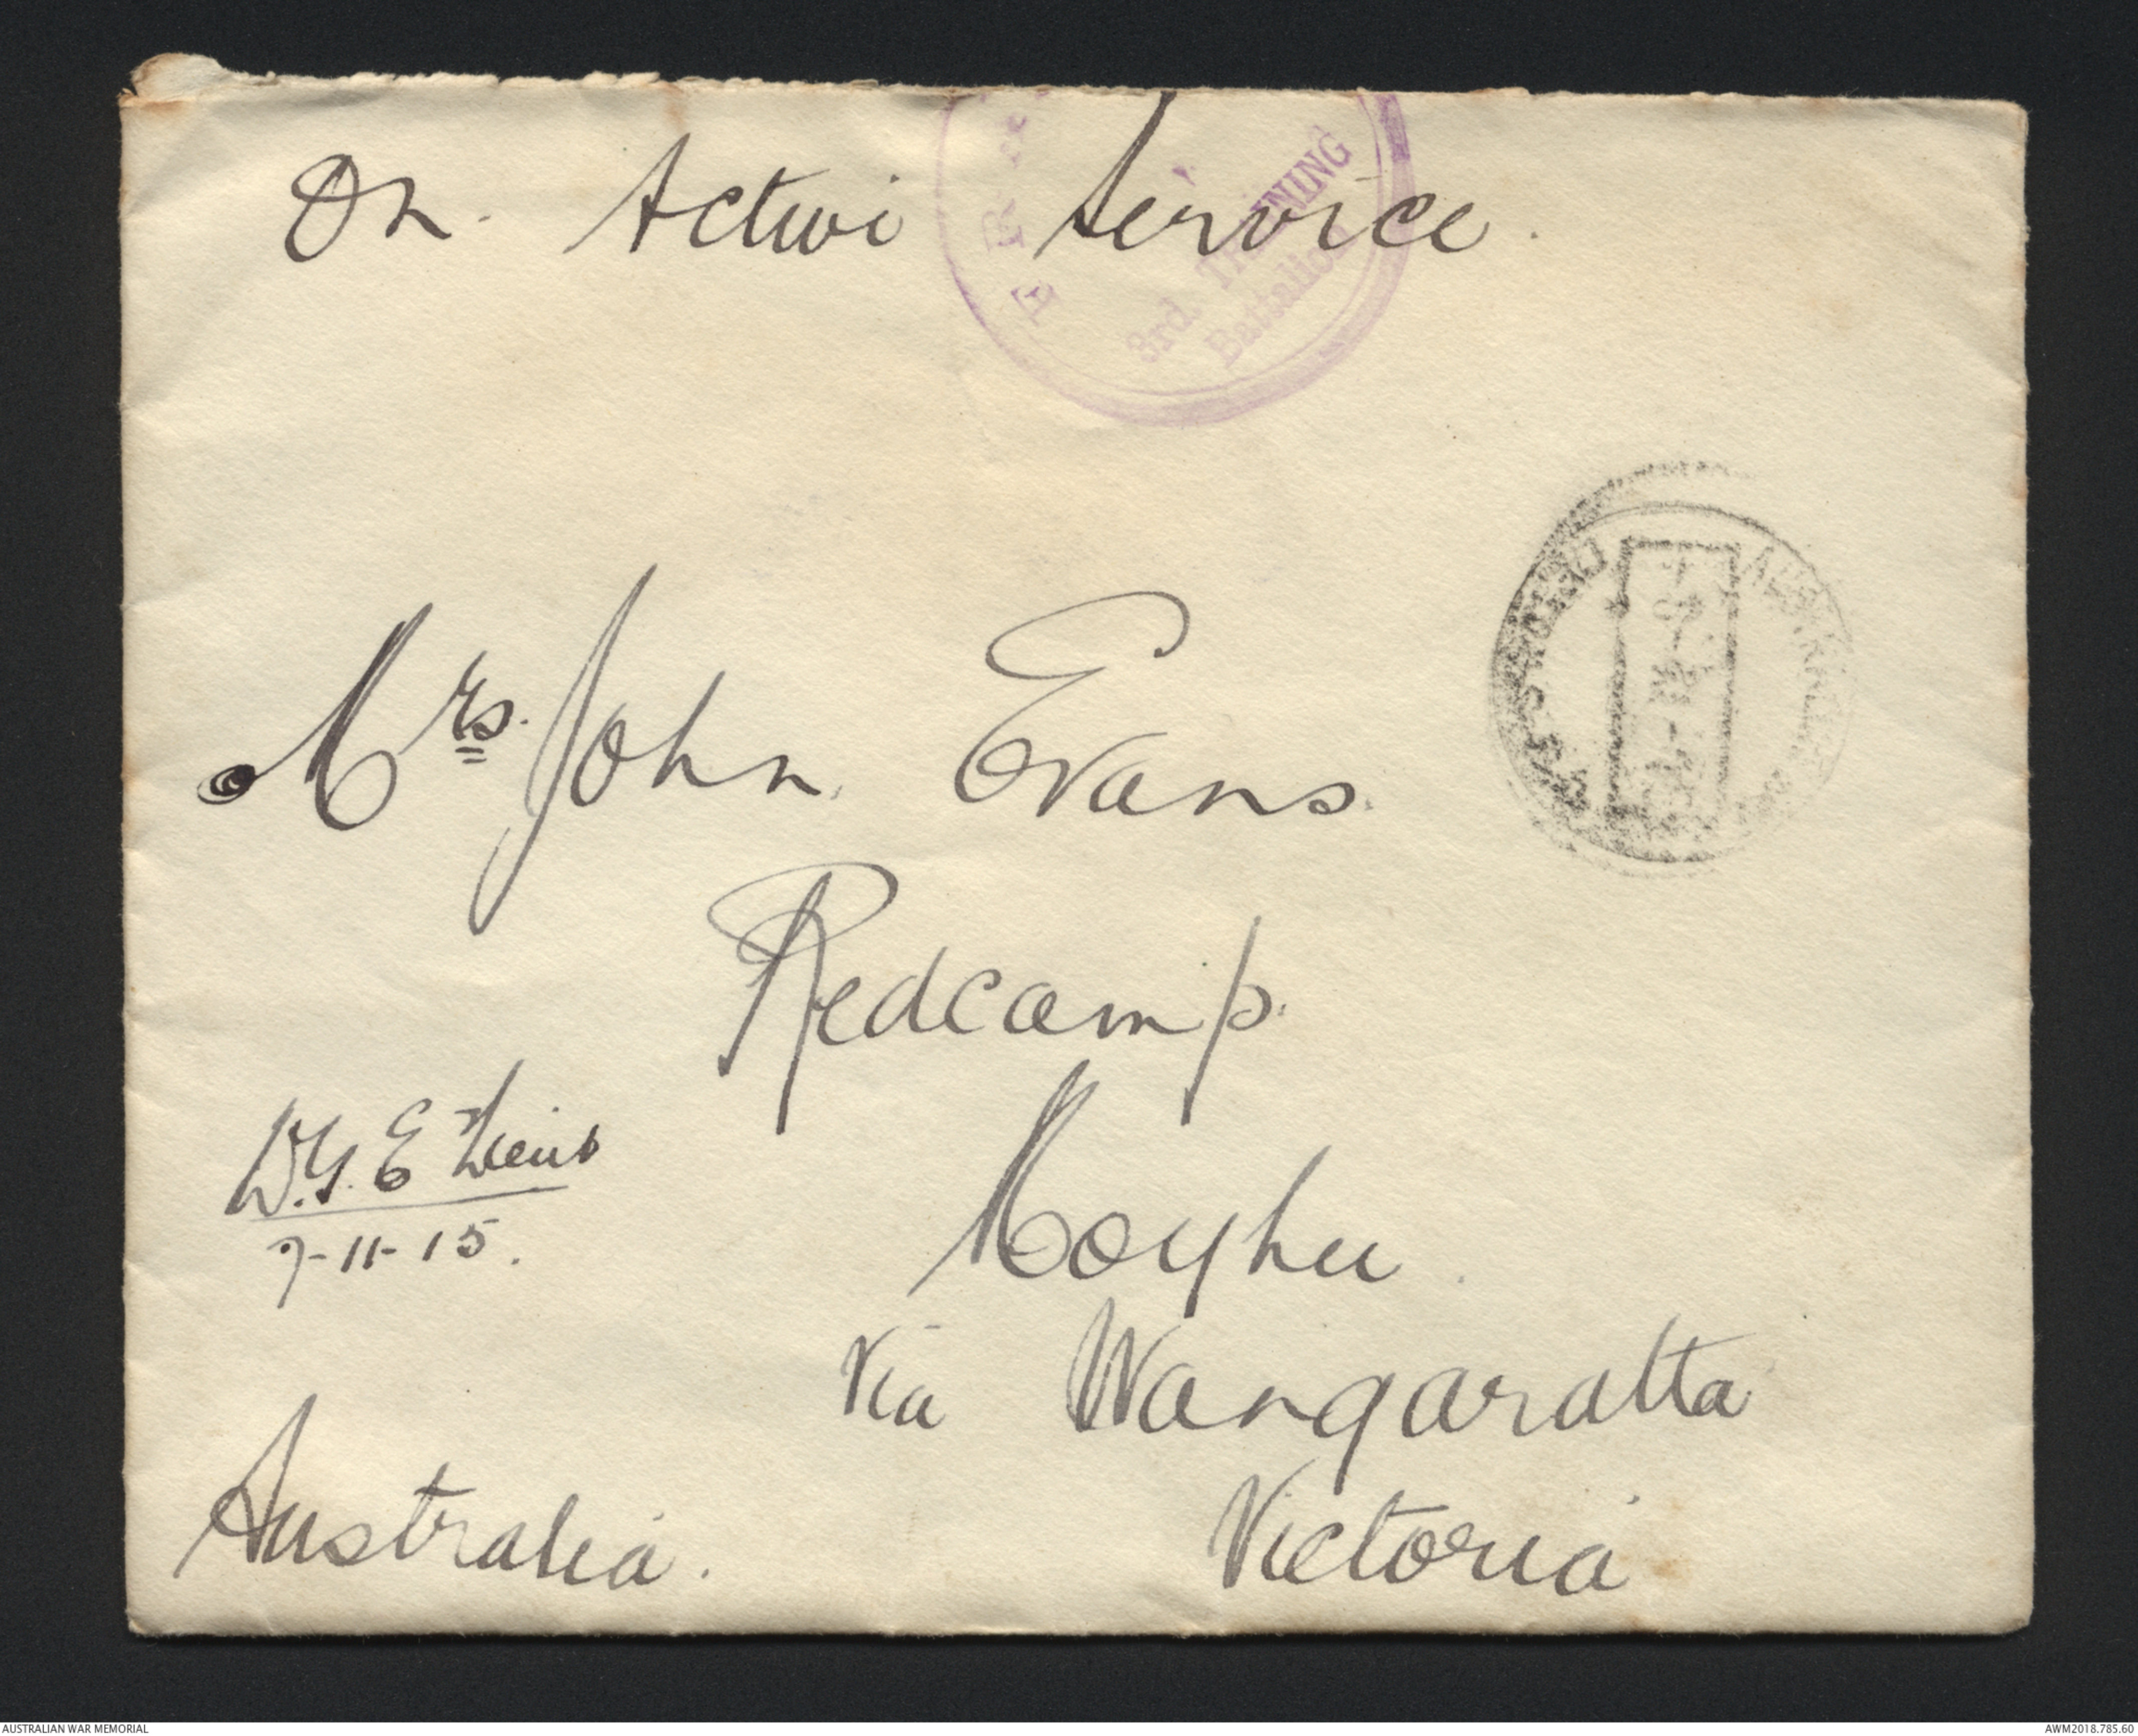 On Active Service.
3rd. TRAINING
Battalion
Mrs. John Evans.
Redcamp.
Moyhu.
Via Wangaratta
Victoria
Australia.
W.G.E
7-11-15.
AUSTRALIAN WAR MEMORIAL
AWM2018.785.60